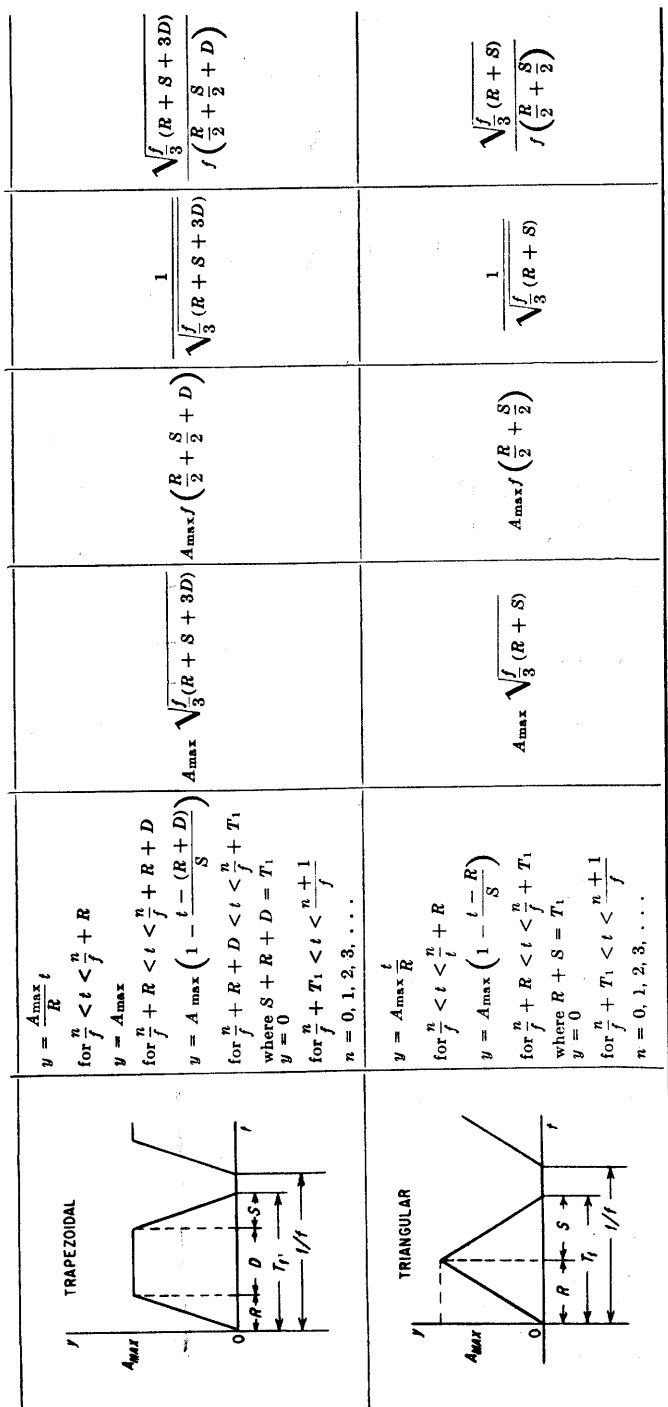 TRAPEZOIDAL
y
A_MAX
0
R
D
S
T₁
1/f
t
y = \frac{A_{max}}{R} t
for \frac{n}{f} < t < \frac{n}{f} + R
y = A_{max}
for \frac{n}{f} + R < t < \frac{n}{f} + R + D
y = A_{max} \left( 1 - \frac{t - (R + D)}{S} \right)
for \frac{n}{f} + R + D < t < \frac{n}{f} + T₁
where S + R + D = T₁
y = 0
for \frac{n}{f} + T₁ < t < \frac{n + 1}{f}
n = 0, 1, 2, 3, . . .
A_{max} \sqrt{\frac{f}{3} (R + S + 3D)}
A_{max} f \left( \frac{R}{2} + \frac{S}{2} + D \right)
\frac{1}{\sqrt{\frac{f}{3} (R + S + 3D)}}
\frac{\sqrt{\frac{f}{3} (R + S + 3D)}}{f \left( \frac{R}{2} + \frac{S}{2} + D \right)}
TRIANGULAR
y
A_MAX
0
R
S
T₁
1/f
t
y = A_{max} \frac{t}{R}
for \frac{n}{f} < t < \frac{n}{t} + R
y = A_{max} \left( 1 - \frac{t - R}{S} \right)
for \frac{n}{f} + R < t < \frac{n}{f} + T₁
where R + S = T₁
y = 0
for \frac{n}{f} + T₁ < t < \frac{n + 1}{f}
n = 0, 1, 2, 3, . . .
A_{max} \sqrt{\frac{f}{3} (R + S)}
A_{max} f \left( \frac{R}{2} + \frac{S}{2} \right)
\frac{1}{\sqrt{\frac{f}{3} (R + S)}}
\frac{\sqrt{\frac{f}{3} (R + S)}}{f \left( \frac{R}{2} + \frac{S}{2} \right)}